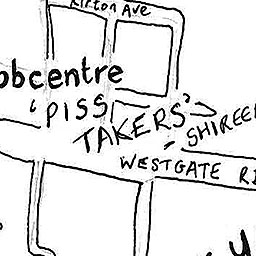 Kirton Ave
obcentre
'PISS
TAKERS'
SHIREE
WESTGATE R